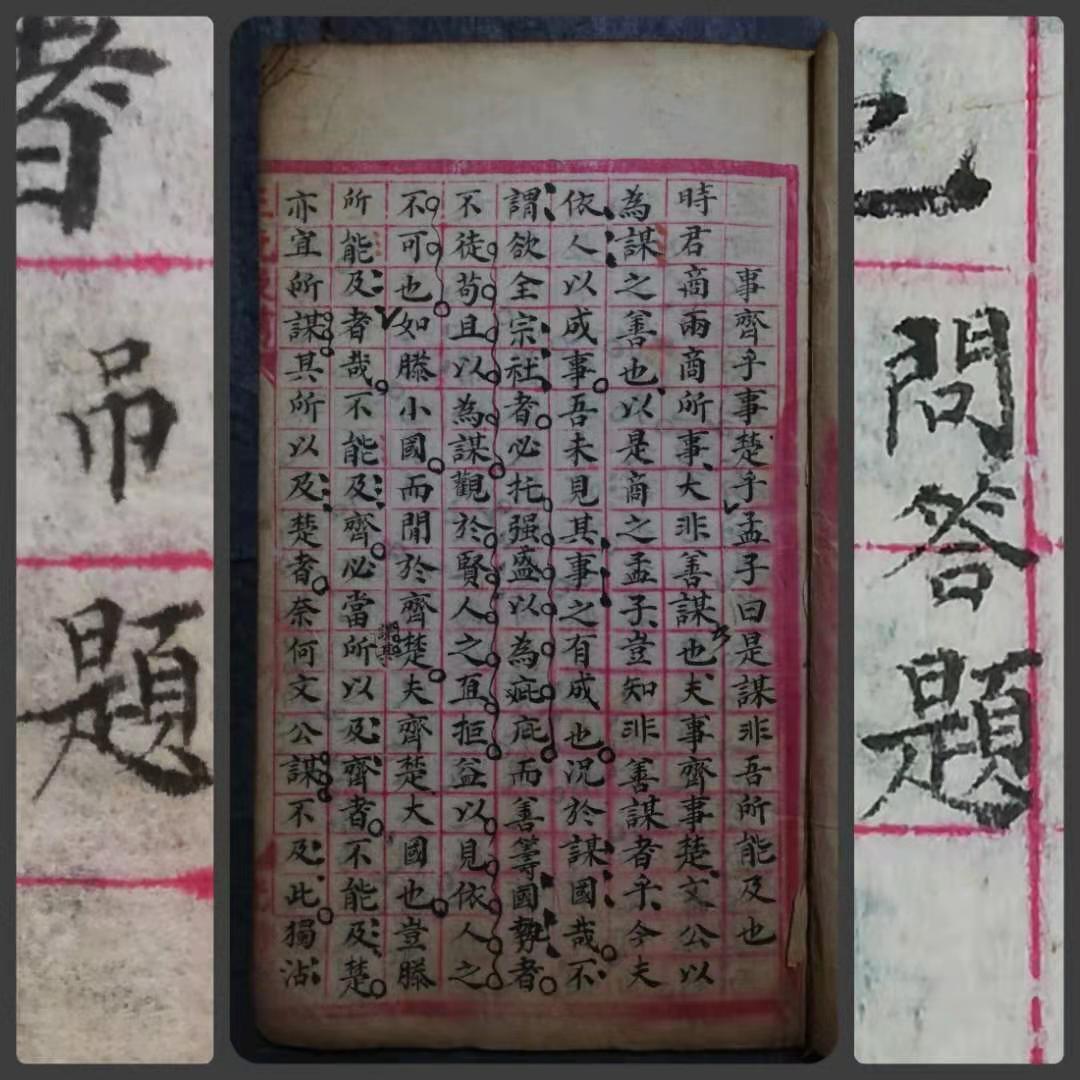 問答題
事齊乎事楚乎孟子曰是謀非吾所能及也
時君商兩商所事大非善謀也夫事齊事楚文公以
為謀之善也以是商之孟子豈知非善謀者乎今夫
依人以成事吾未見其事之有成也況於謀國哉不
謂欲全宗社者必托强盛以為疵庇而善籌國勢者
不徒苟且以為謀觀於賢人之直拒益以見依人之
不可也如滕小國而間於齊楚夫齊楚大國也豈滕
所能及者哉不能及齊必當所以及齊者不能及楚
謀其
亦宜所謀其所以及楚者奈何文公謀不及此獨沾
者吊題